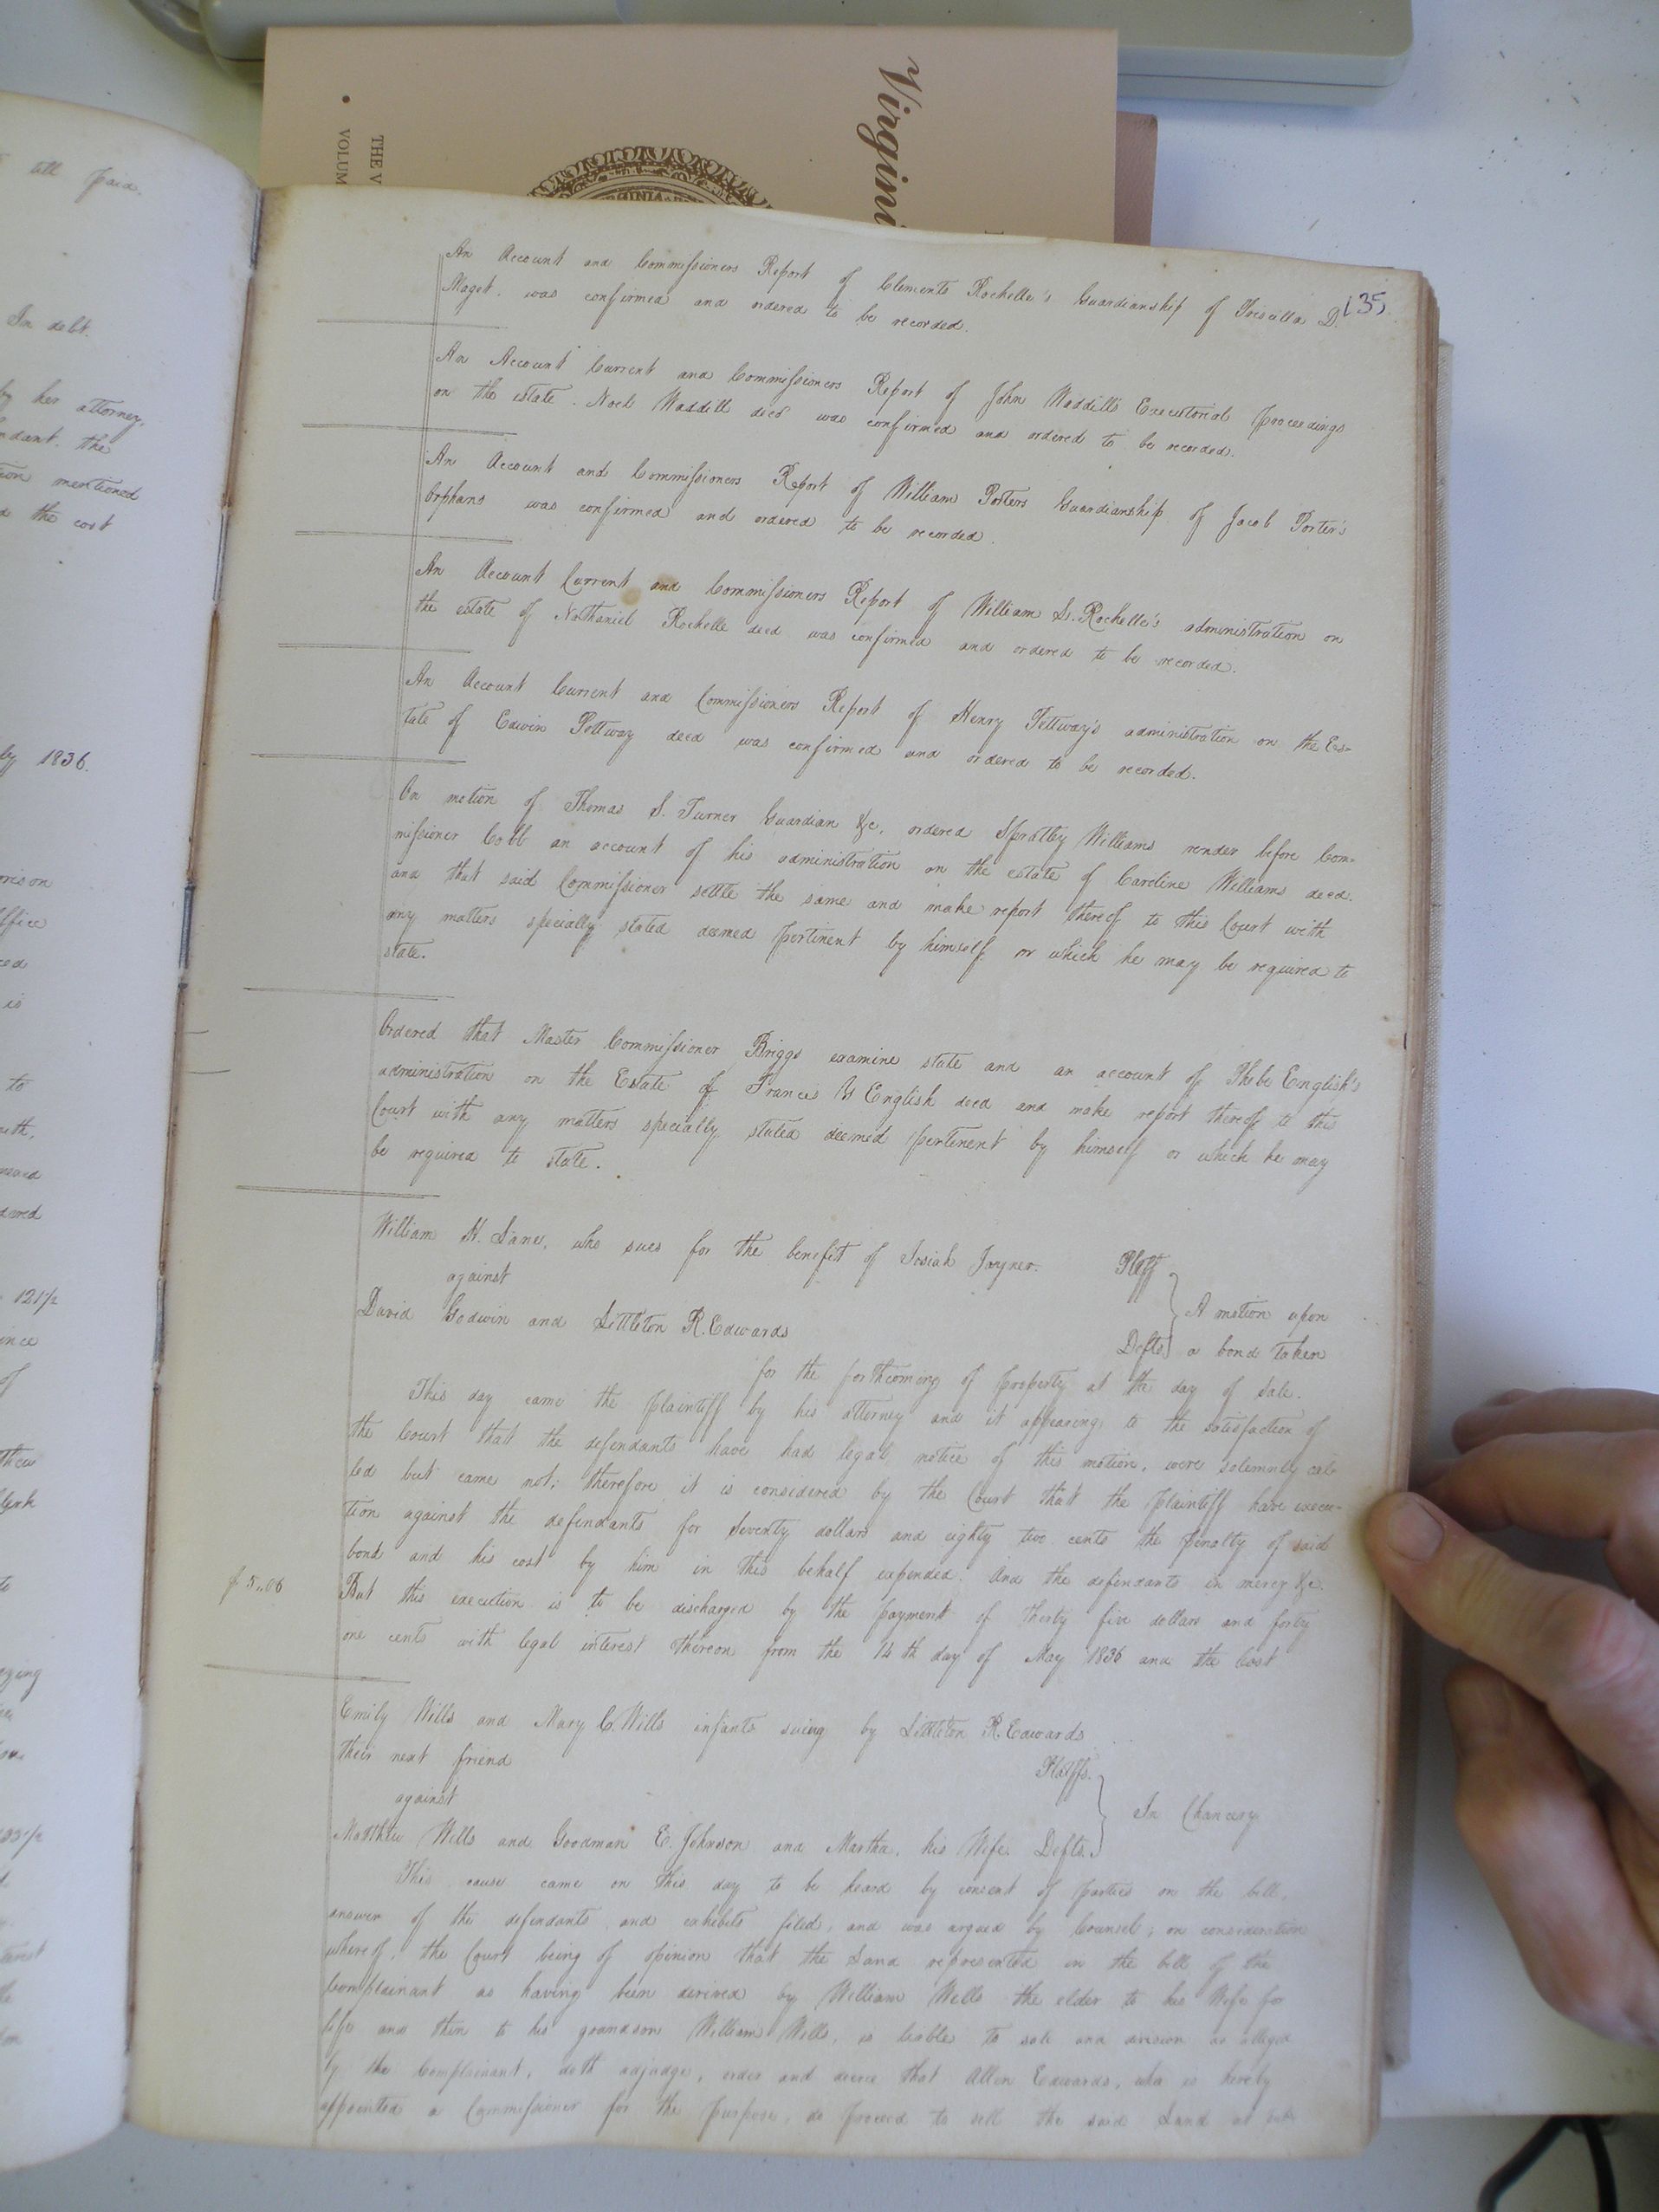 Virgini
THE V
VOLUM
till paid.
In debt.
by her attorney,
the
mentioned
the cost
1836.
to
135
An Account and Commissioners Report of Clements Rochelle's Guardianship of Priscilla D.
Maget. was confirmed and ordered to be recorded.
An Account Current and Commissioners Report of John Waddill's Executorial proceedings
on the estate. Noel Waddill decd was confirmed and ordered to be recorded.
An Account and Commissioners Report of William Porters Guardianship of Jacob Porter's
Orphans was confirmed and ordered to be recorded.
An Account Current and Commissioners Report of William S. Rochelle's administration on
the estate of Nathaniel Rochelle decd was confirmed and ordered to be recorded.
An Account Current and Commissioners Report of Henry Pettway's administration on the Es-
tate of Edwin Pettway decd was confirmed and ordered to be recorded.
On motion of Thomas S. Turner Guardian &c, ordered Spratley Williams render before Com-
missioner Cobb an account of his administration on the estate of Caroline Williams decd.
and that said Commissioner settle the same and make report thereof to this Court with
any matters specially stated deemed pertinent by himself or which he may be required to
state.
Ordered that Master Commissioner Briggs examine state and an account of Phebe English's
administration on the Estate of Frances English decd and make report thereof to this
Court with any matters specially stated deemed pertinent by himself or which he may
be required to state.
William H. Lane, who sues for the benefit of Josiah Joyner. Pltff
against
A motion upon
David Godwin and Littleton R. Edwards Defts. a bond taken
for the forthcoming of property at the day of Sale.
This day came the plaintiff by his attorney and it appearing to the satisfaction of
the Court that the defendants have had legal notice of this motion, were solemnly cal-
led but came not; therefore it is considered by the Court that the plaintiff have execu-
tion against the defendants for Seventy dollars and eighty two cents the penalty of said
bond and his cost by him in this behalf expended. And the defendants in mercy &c.
$5..06 But this execution is to be discharged by the payment of thirty five dollars and forty
one cents with legal interest thereon from the 14th day of May 1836 and the Cost
Emily Wills and Mary C. Wills infants suing by Littleton R. Edwards
their next friend Pltffs.
against
In Chancery
Matthew Wills and Goodman E. Johnson and Martha, his Wife. Defts.
This cause came on this day to be heard by consent of parties on the bill,
answer of the defendants and exhibits filed, and was argued by Counsel; on consideration
whereof, the Court being of opinion that the Land represented in the bill of the
Complainant as having been devised by William Wills the elder to his Wife for
life and then to his grandson William Wills, is liable to sale and division as alleged
by the Complainant, doth adjudge, order and decree that Allen Edwards, who is hereby
appointed a Commissioner for the purpose, do proceed to sell the said Land at